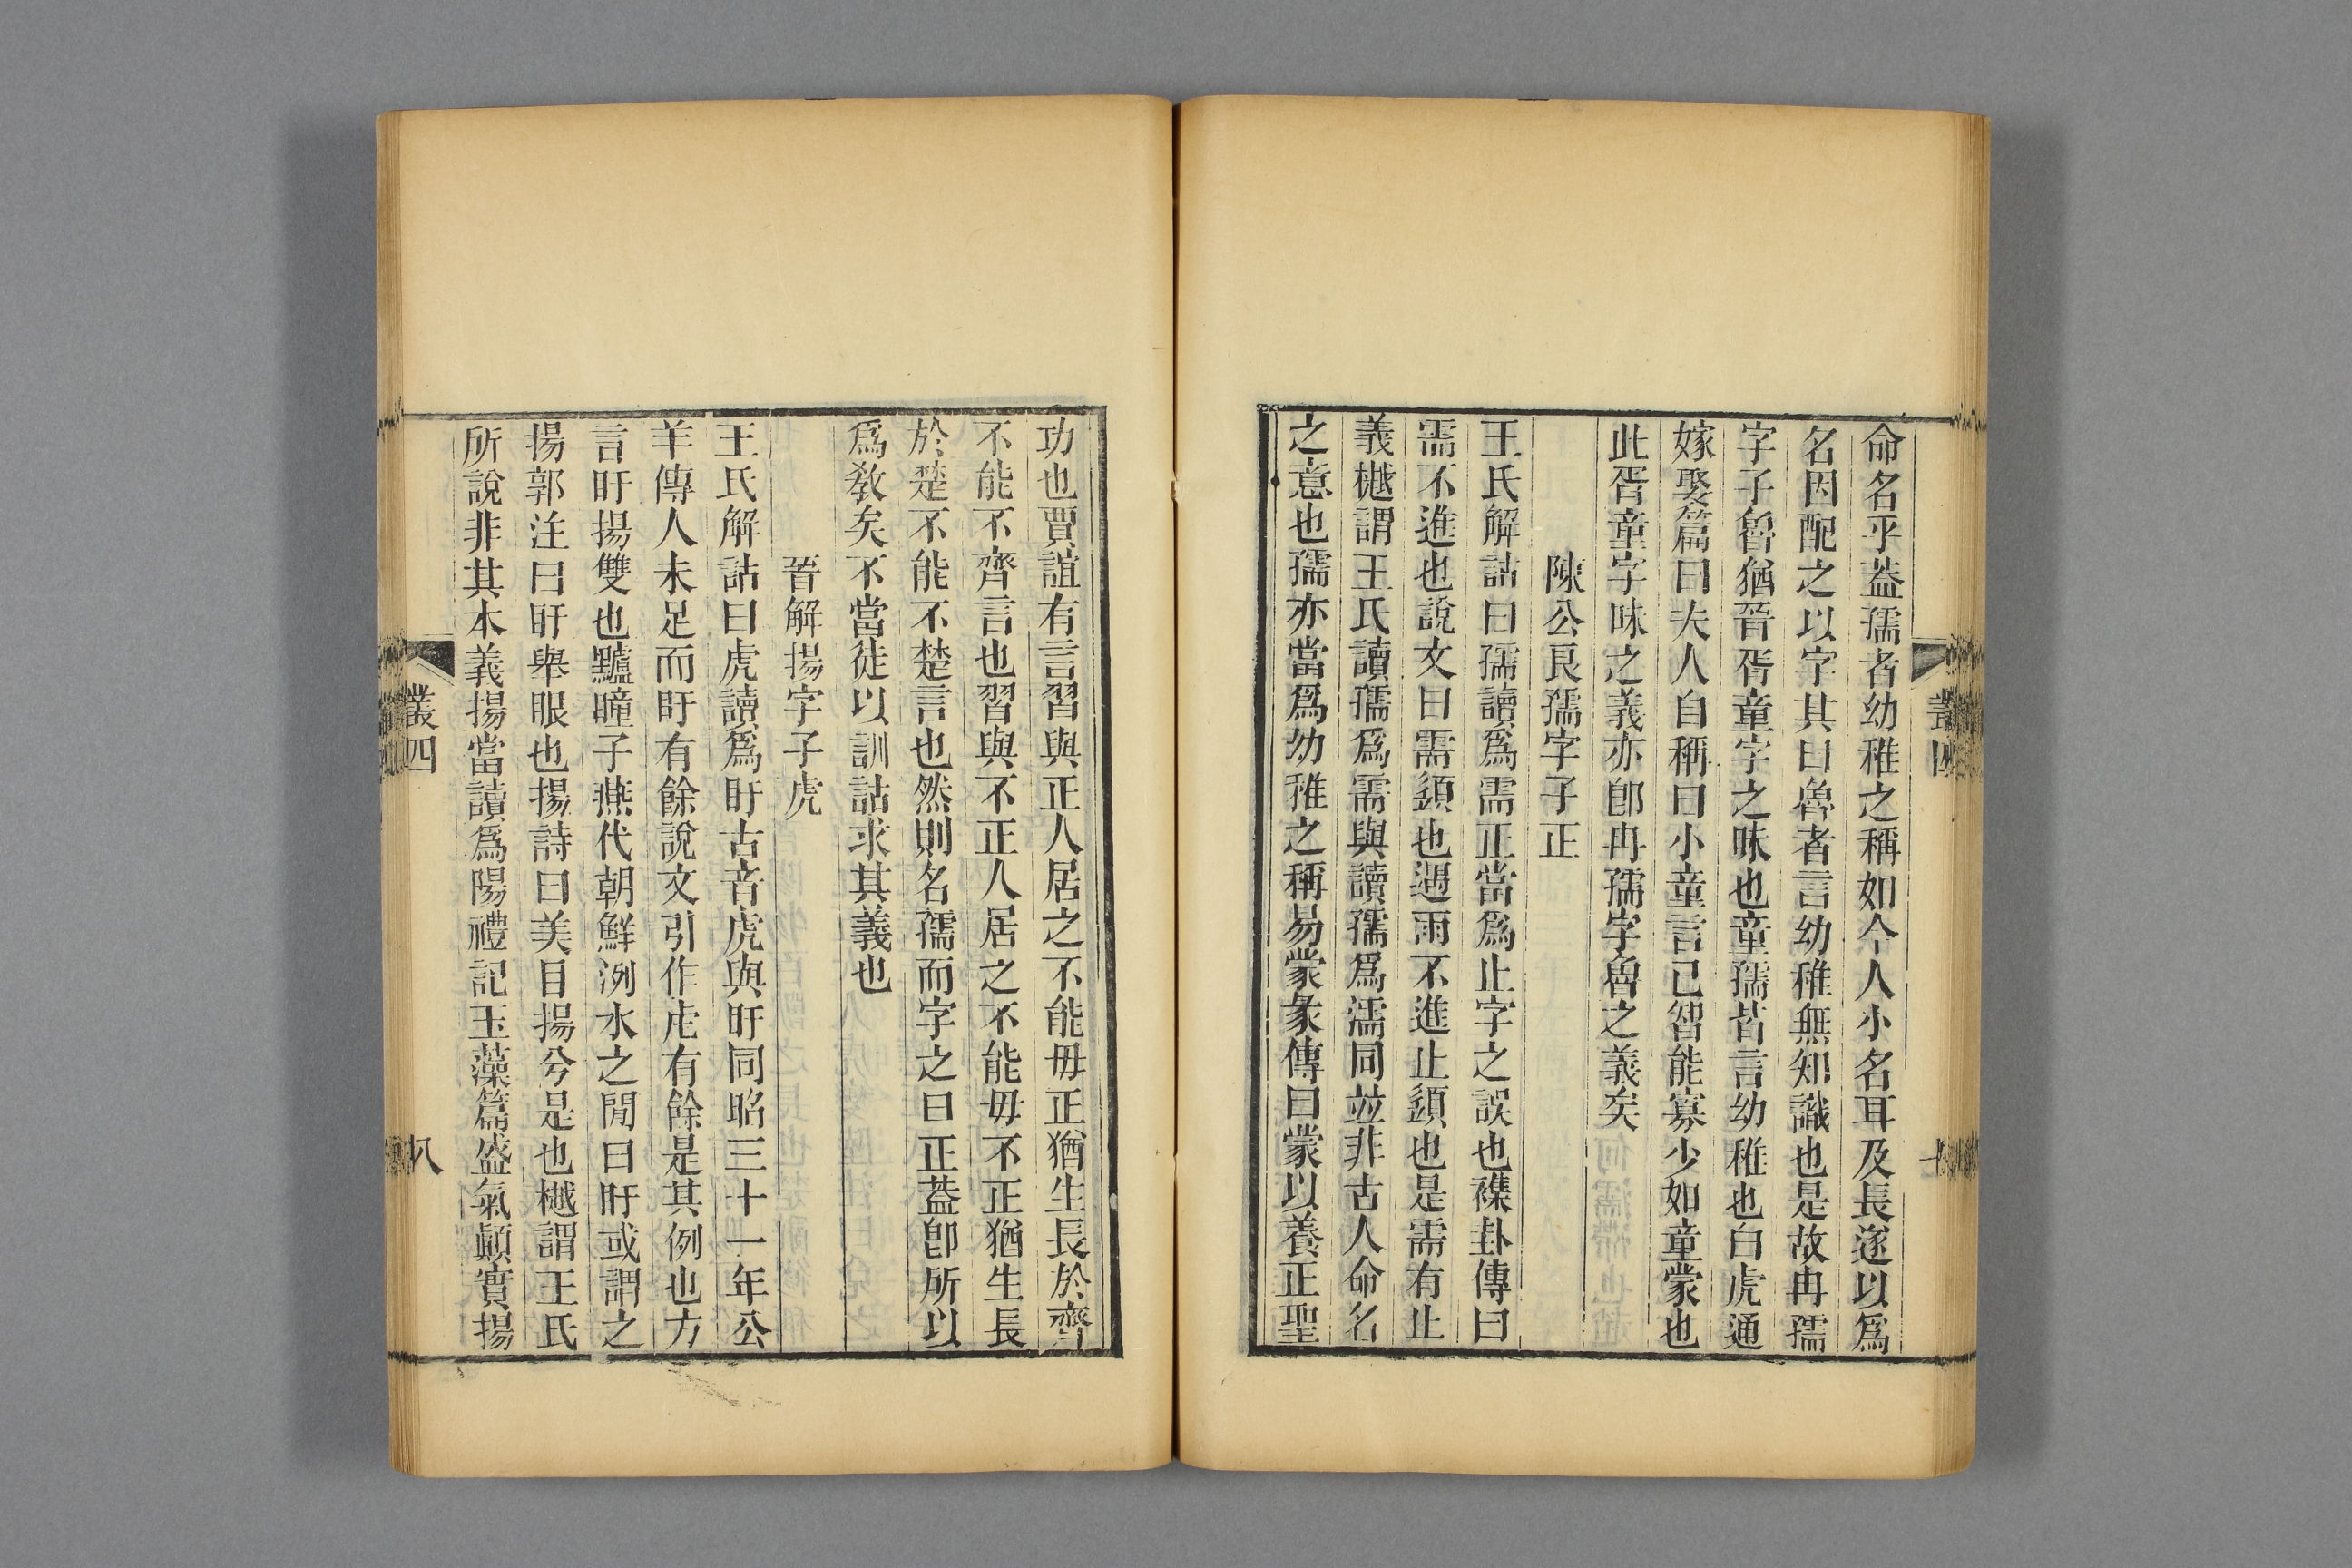 命名乎葢孺者幼稚之稱如今人小名耳及長遂以爲
名因配之以字其曰魯者言幼稚無知識也是故冉孺
字子魯猶晉胥童字之昧也童孺皆言幼稚也白虎通
嫁娶篇曰夫人自稱曰小童言已智能寡少如童蒙也
此胥童字昧之義亦卽冉孺字魯之義矣
陳公良孺字子正
王氏解詁曰孺讀爲需正當爲止字之誤也襍卦傳曰
需不進也說文曰需䇓也遇雨不進止䇓也是需有止
義樾謂王氏讀孺爲需與讀孺爲濡同竝非古人命名
之意也孺亦當爲幼稚之稱易蒙彖傳曰蒙以養正聖
功也賈誼有言習與正人居之不能毋正猶生長於齊
不能不齊言也習與不正人居之不能毋不正猶生長
於楚不能不楚言也然則名孺而字之曰正葢卽所以
爲敎矣不當徒以訓詁求其義也
晉解揚字子虎
王氏解詁曰虎讀爲盱古音虎與盱同昭三十一年公
羊傳人未足而盱有餘說文引作虍有餘是其例也方
言盱揚雙也驢瞳子燕代朝鮮洌水之閒曰盱或謂之
揚郭注曰盱舉眼也揚詩曰美目揚兮是也樾謂王氏
所說非其本義揚當讀爲陽禮記玉藻篇盛氣顚實揚
叢四
八
叢四